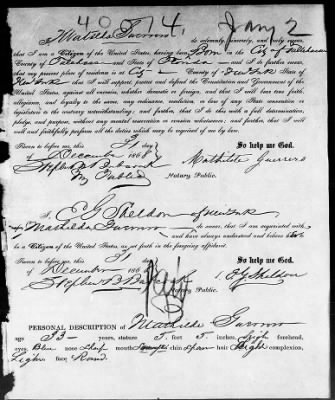 40874
Jany 2
I Mathilde do solemnly, sincerely, and truly swear,
that I am a Citizen of the United States, having been Born in the City of
County of and State of Florida and
that my present place of residence is at City County of New York State of
New York that I will support, protect and defend the Constitution and Government of the
United States, against all enemies, whether domestic or foreign, and that I will bear true faith,
allegiance, and loyalty to the same, any ordinance, resolution, or law of any State convention or
legislature to the contrary notwithstanding; and further, that I do this with a full determination,
pledge, and purpose, without any mental reservation or evasion whatsoever; and further, that I will
well and faithfully perform all the duties which may be required of me by law.
Sworn to before me, this 31 So help me God.
December 186 Mathilde Guerrero
Stephen B
Ny Public Notary Public.
I, E G Sheldon of New York
do swear, that I am acquainted with
Mathilde and have always understood and believe to
be a Citizen of the United States, as set forth in the foregoing affidavit.
Sworn to before me, this 31 So help me God.
December 186
Stephen B E G Sheldon
Notary Public.
PERSONAL DESCRIPTION of Mathilde
age 33 years, stature 5 feet 5 inches, High forehead,
eyes Blue nose Sharp mouth chin hair complexion,
Light face Round.